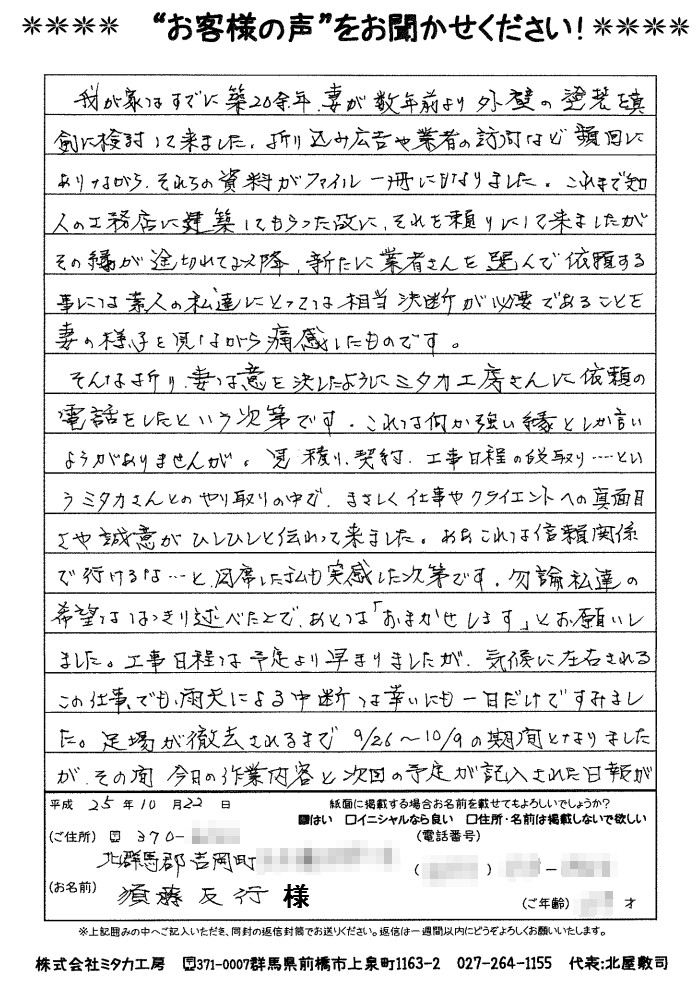 ＊＊＊＊ “お客様の声”をお聞かせください！＊＊＊＊
我が家はすでに築20余年、妻が数年前より外壁の塗装を真
剣に検討して来ました。折り込み広告や業者の訪問など頻回に
ありながら、それらの資料がファイル一冊にもなりました。これまで知
人の工務店に建築してもらった故に、それを頼りにして来ましたが
その縁が途切れて以降、新たに業者さんを選んで依頼する
事には素人の私達にとっては相当決断が必要であることを
妻の様子を見ながら痛感したものです。
そんな折り、妻は意を決したようにミタカ工房さんに依頼の
電話をしたという次第です。これは何か強い縁としか言い
ようがありませんが。見積り、契約、工事日程の段取り……とい
うミタカさんとのやり取りの中で、まさしく仕事やクライエントへの真面目
さや誠意がひしひしと伝わって来ました。ああこれは信頼関係
で行けるな…と、同席した私も実感した次第です。勿論私達の
希望ははっきり述べた上で、あとは「おまかせします」とお願いし
ました。工事日程は予定より早まりましたが、気候に左右される
この仕事でも、雨天による中断は幸いにも一日だけですみまし
た。足場が徹去されるまで 9/26～10/9の期間となりました
が、その間 今日の作業内容と次回の予定が記入された日報が
平成 25 年 10 月 22 日 紙面に掲載する場合お名前を載せてもよろしいでしょうか？
■はい □イニシャルなら良い □住所・名前は掲載しないで欲しい
(ご住所) 〒 370- (電話番号)
北群馬郡吉岡町 ( ) －
(お名前) 須藤友行 様 (ご年齢) 才
※上記囲みの中へご記入いただき、同封の返信封筒でお送りください。返信は一週間以内にどうぞよろしくお願いいたします。
株式会社ミタカ工房 〒371-0007群馬県前橋市上泉町1163-2 027-264-1155 代表:北屋敷司